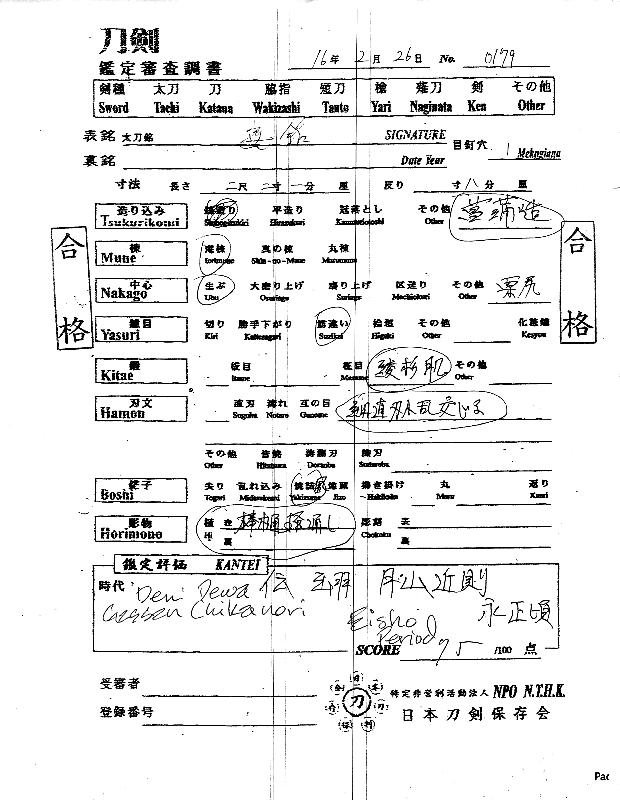 刀剣
鑑定審査調書
16年 2月 26日 No. 0179
剣種 太刀 刀 脇指 短刀 槍 薙刀 剣 その他
Sword Tachi Katana Wakizashi Tanto Yari Naginata Ken Other
表銘 太刀銘 SIGNATURE 目釘穴 1 Mekugiana
裏銘 Date Year
寸法 長さ 二尺 二寸 一分 厘 反り 寸 八分 厘
造り込み 鎬造り 平造り 冠落とし その他
Tsukurikomi Shinogizukuri Hirazukuri Kanmuriotoshi Other
合格
合格
棟 庵棟 真の棟 丸棟
Mune Iorimune Shin-no-Mune Marumune
中心 生ぶ 大磨り上げ 磨り上げ 区送り その他 栗尻
Nakago Ubu Osuriage Suriage Machiokuri Other
鑢目 切り 勝手下がり 筋違い 桧垣 その他 化粧鑢
Yasuri Kiri Kattesagari Sujikai Higaki Other Kesyou
鍛 板目 柾目 綾杉肌 その他
Kitae Itame Masame Other
刃文 直刃 湾れ 互の目 細直刃小乱交じる
Hamon Suguha Notare Gunome
その他 皆焼 濤瀾刃 簾刃
Other Hitatsura Doranba Sudareba
鋩子 尖り 乱れ込み 焼詰 地蔵 掃き掛け 丸 返り
Boshi Togari Midarekomi Yakizume Jizo Hakikake Maru Kaeri
彫物 樋 表 棒樋掻通し 彫刻 表
Horimono Hi 裏 Chokoku 裏
鑑定評価 KANTEI
時代 Den Dewa 伝 出羽 月山近則
Gassan Chikanori Eisho 永正頃
Period
SCORE 75 /100 点
受審者
登録番号
刀
特定非営利活動法人 NPO N.T.H.K.
日本刀剣保存会
Pac